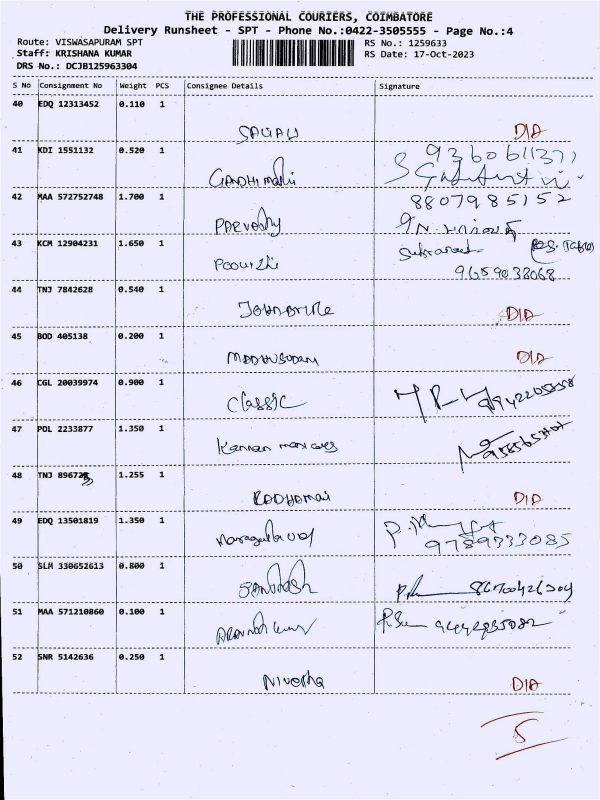 THE PROFESSIONAL COURIERS, COIMBATORE
Delivery Runsheet - SPT - Phone No.:0422-3505555 - Page No.:4
Route: VISWASAPURAM SPT RS No.: 1259633
Staff: KRISHANA KUMAR RS Date: 17-Oct-2023
DRS No.: DCJB125963304
S No Consignment No Weight PCS Consignee Details Signature
40 EDQ 12313452 0.110 1
DIA
41 KDI 1551132 0.520 1 9360611377
GANDHI mathi
42 MAA 572752748 1.700 1 8807985152
PARVathy
43 KCM 12904231 1.650 1
9659038068
44 TNJ 7842628 0.540 1
DIA
45 BOD 405138 0.200 1
MADHUSUDAN DIA
46 CGL 20039974 0.900 1
Classic
47 POL 2233877 1.350 1
Kannan
48 TNJ 89672 1.255 1
RADHAMAI DIA
49 EDQ 13501819 1.350 1
9789333085
50 SLM 330652613 0.800 1
Santhosh
51 MAA 571210860 0.100 1
52 SNR 5142636 0.250 1
Nivetha DIA
5